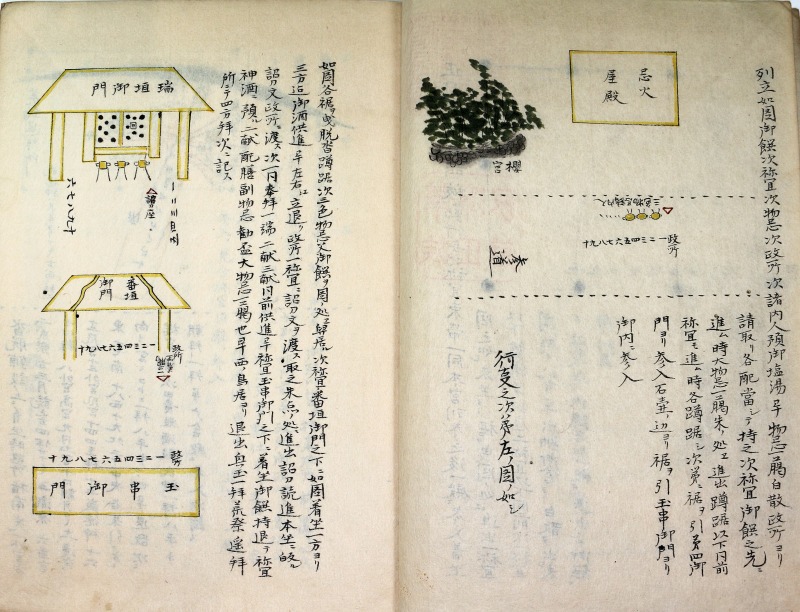 列立如図御饌次祢宜次物忌次政所次諸内人預御塩湯早物忌三﨟白散政所ヨリ
請取リ各配當シテ持之次祢宜御饌之先ニ
進ム時大物忌三﨟朱ノ処ニ進出蹲踞以下内前
祢宜モ進ム時各蹲踞シ次第ニ裾ヲ引第四御
門ヨリ参入石壷ノ辺ヨリ裾ヲ引玉串御門ヨリ
御内ニ参入
行事之次第左ノ図ノ如シ
忌火
屋殿
櫻宮
一二三四五六七八九十
政所
参道
如図各裾ヲ曳脱沓蹲踞次三色物忌父御饌ヲ図処ニ居ル次祢宜番垣御門之下ニ如図着坐一方ヨリ
三方迄御酒供進早左右江立退ク政所一祢宜ニ詔刀文ヲ渡ス取之朱点ノ処ニ進出詔刀読進本坐ニ皈ル
詔刀文政所ニ渡ス次一同奉拝一端二献三献同前供進早祢宜玉串御門之下ニ着坐御饌持退テ祢宜
神酒ニ預ル二献配膳副物忌勧盃大物忌三﨟也早西ノ鳥居ヨリ退出興玉一拝荒祭遥拝
所ニテ四方拝次ニ記ス
瑞垣御門
六七八九十
講座
一二三四五
番垣
御門
一二三四五六七八九十
政所
一二三四五六七八九十
政所
玉串御門